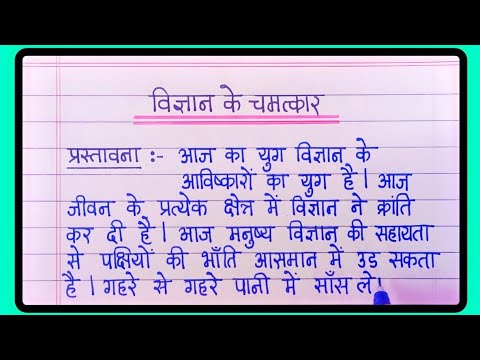 विज्ञान के चमत्कार
प्रस्तावना :- आज का युग विज्ञान के
आविष्कारों का युग है। आज
जीवन के प्रत्येक क्षेत्र में विज्ञान ने क्रांति
कर दी है। आज मनुष्य विज्ञान की सहायता
से पक्षियों की भाँति आसमान में उड़ सकता
है। गहरे से गहरे पानी में साँस ले